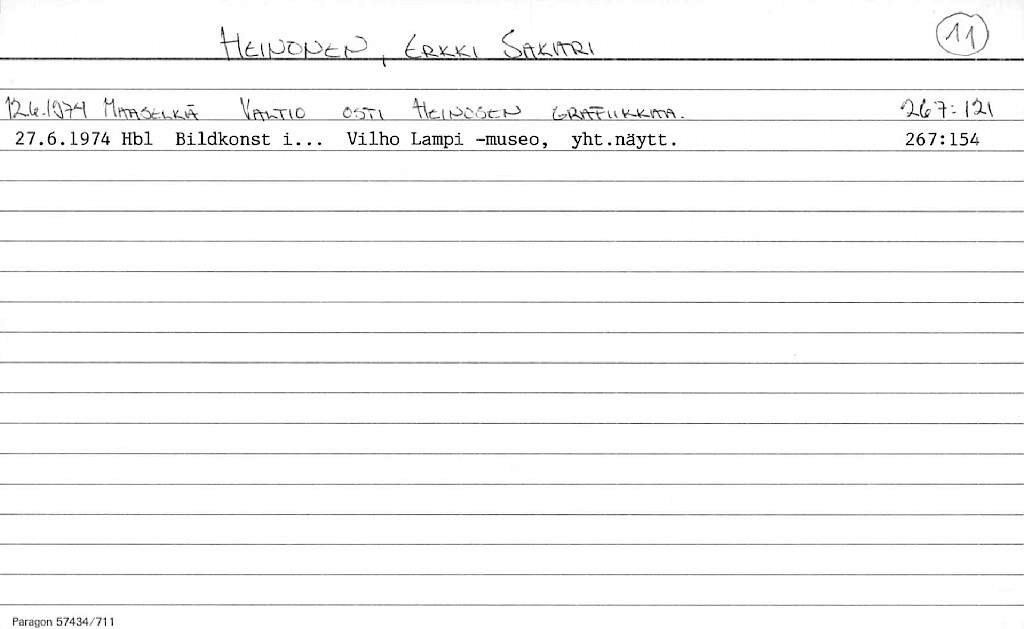 HEINONEN, ERKKI SAKARI 11
12.6.1974 MAASELKÄ VALTIO OSTI HEINOSEN GRAFIIKKAA. 267:121
27.6.1974 Hbl Bildkonst i... Vilho Lampi -museo, yht.näytt. 267:154
Paragon 57434/711